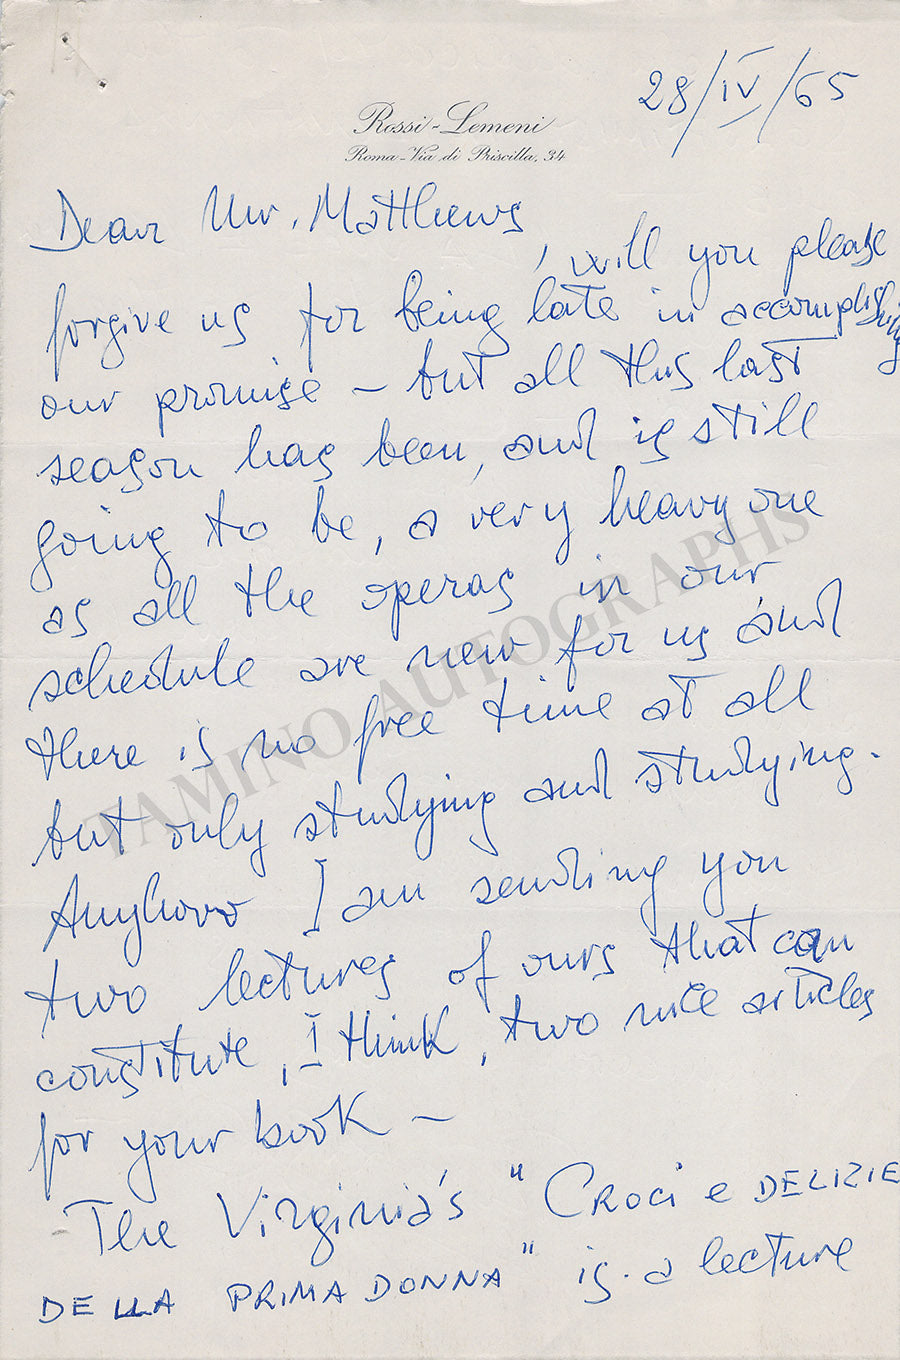 28/IV/65
Rossi-Lemeni
Roma - Via di Priscilla, 34
Dear Mr. Matthews
, will you please
forgive us for being late in accomplishing
our promise – but all this last
season has been, and is still
going to be, a very heavy one
as all the operas in our
schedule are new for us and
there is no free time at all
but only studying and studying.
Anyhow I am sending you
two lectures of ours that can
constitute, I think, two nice articles
for your book –
The Virginia's "CROCI e DELIZIE
DELLA PRIMA DONNA" is a lecture
TAMINO AUTOGRAPHS